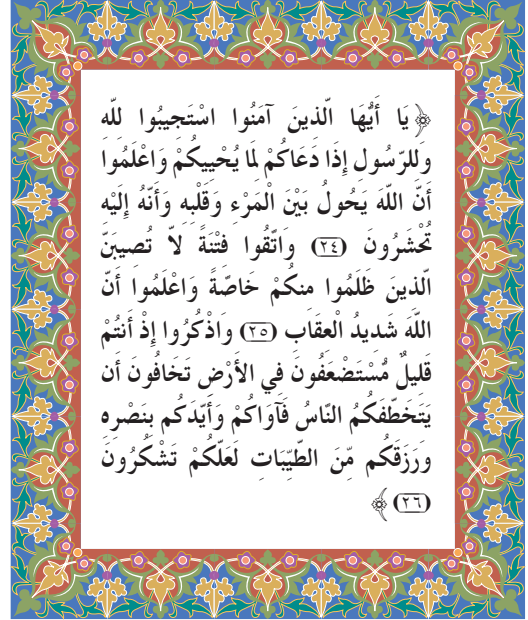 ﴿يَا أَيُّهَا الَّذينَ آمَنُوا اسْتَجيبُوا للّه
وَللرّسُول إذَا دَعَاكُمْ لمَا يُحْييكُمْ وَاعْلَمُوا
أَنّ اللّهَ يَحُولُ بَيْنَ الْمَرْء وَقَلْبه وَأَنّهُ إلَيْه
تُحْشَرُونَ (٢٤) وَاتّقُوا فتْنَةً لاّ تُصيبَنّ
الّذينَ ظَلَمُوا منكُمْ خَاصّةً وَاعْلَمُوا أَنّ
اللّهَ شَديدُ الْعقَاب (٢٥) وَاذْكُرُوا إذْ أَنتُمْ
قَليلٌ مُّسْتَضْعَفُونَ في الأَرْض تَخَافُونَ أَن
يَتَخَطّفَكُمُ النّاسُ فَآوَاكُمْ وَأَيّدَكُم بنَصْره
وَرَزَقَكُم مّنَ الطّيّبَات لَعَلّكُمْ تَشْكُرُونَ
(٢٦)﴾